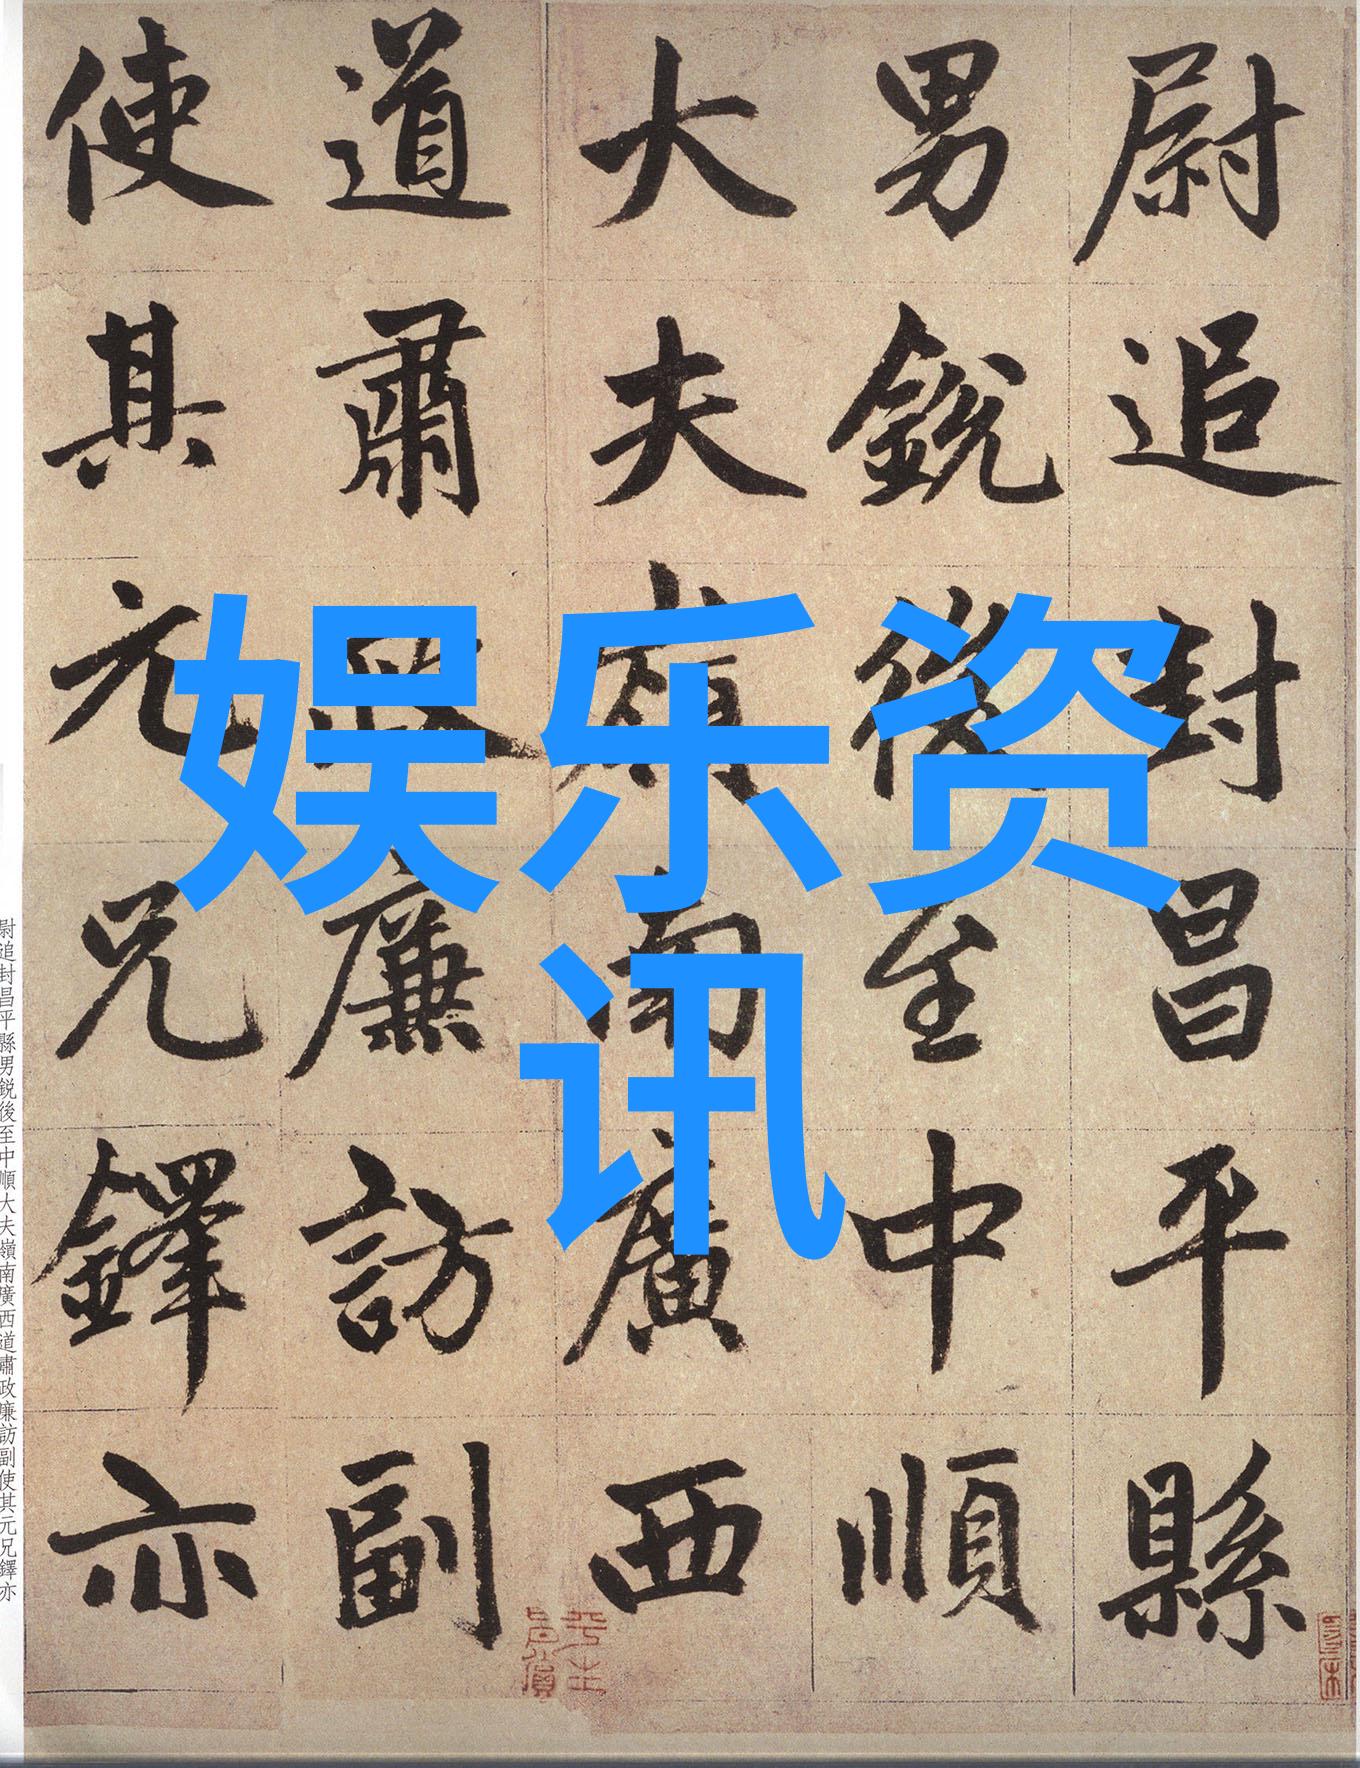 尉追封昌平縣
男銳後至中順
大夫嶺南廣西
道肅政廉訪副
使其元兄鐸亦
娱乐资
讯
尉追封昌平縣男銳後至中順大夫嶺南廣西道肅政廉訪副使其元兄鐸亦